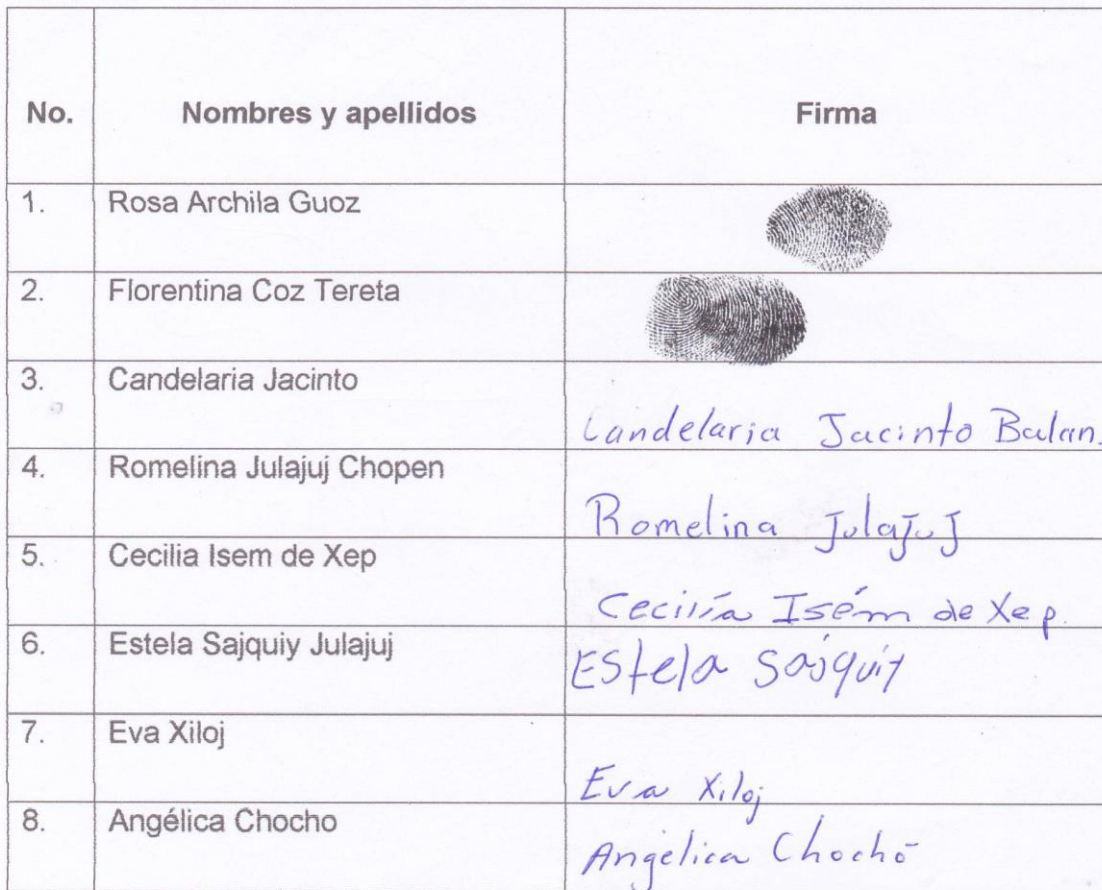 No. Nombres y apellidos Firma
1. Rosa Archila Guoz
2. Florentina Coz Tereta
3. Candelaria Jacinto
Candelaria Jacinto Balan.
4. Romelina Julajuj Chopen
Romelina Julajuj
5. Cecilia Isem de Xep
Cecilia Isém de Xep.
6. Estela Sajquiy Julajuj
Estela Sajquiy
7. Eva Xiloj
Eva Xiloj
8. Angélica Chocho
Angelica Chochó